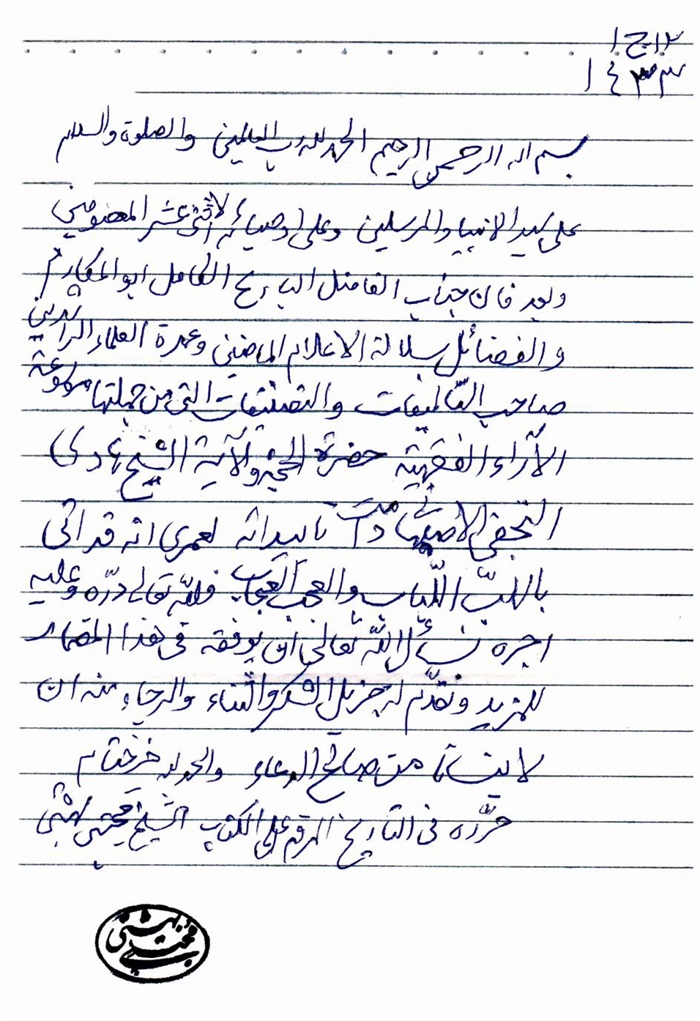 ١٢ ج ١
١٤٣٣
بسم الله الرحمن الرحيم الحمد لله رب العالمين والصلوة والسلام
على سيد الانبياء والمرسلين وعلى اوصيائه الاثنى عشر المعصومين
وبعد فان جناب الفاضل البارع الكامل ابو المكارم
والفضائل سلالة الاعلام الماضين وعمدة العلماء الراشدين
صاحب التأليفات والتصنيفات التى من جملتها موسوعة
الآراء الفقهية حضرة الحجة والآية الشيخ هادى
النجفى الاصفهانى دامت تاييداته لعمرى انه قد اتى
باللبّ اللّباب والعجب العجاب فللّه تعالى درّه وعليه
اجره نسئل اللّه تعالى ان يوفقه فى هذا المضمار
للمزيد ونقدّم له جزيل الشكر والثناء والرجاء منه ان
لا ينسانا من صالح الدعاء والحمد لله خير ختام
حرّره فى التاريخ المرقم على الكتاب الشيخ مجتبى بهشتى
مجتبى بهشتى